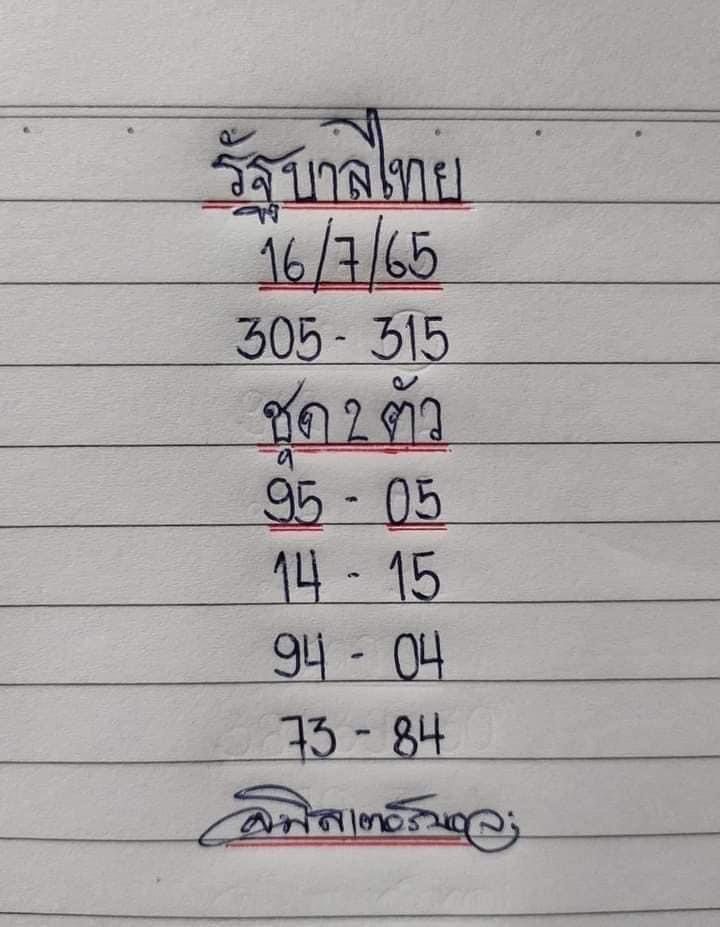 รัฐบาลไทย
16/7/65
305 - 315
ชุด 2 ตัว
95 - 05
14 - 15
94 - 04
73 - 84